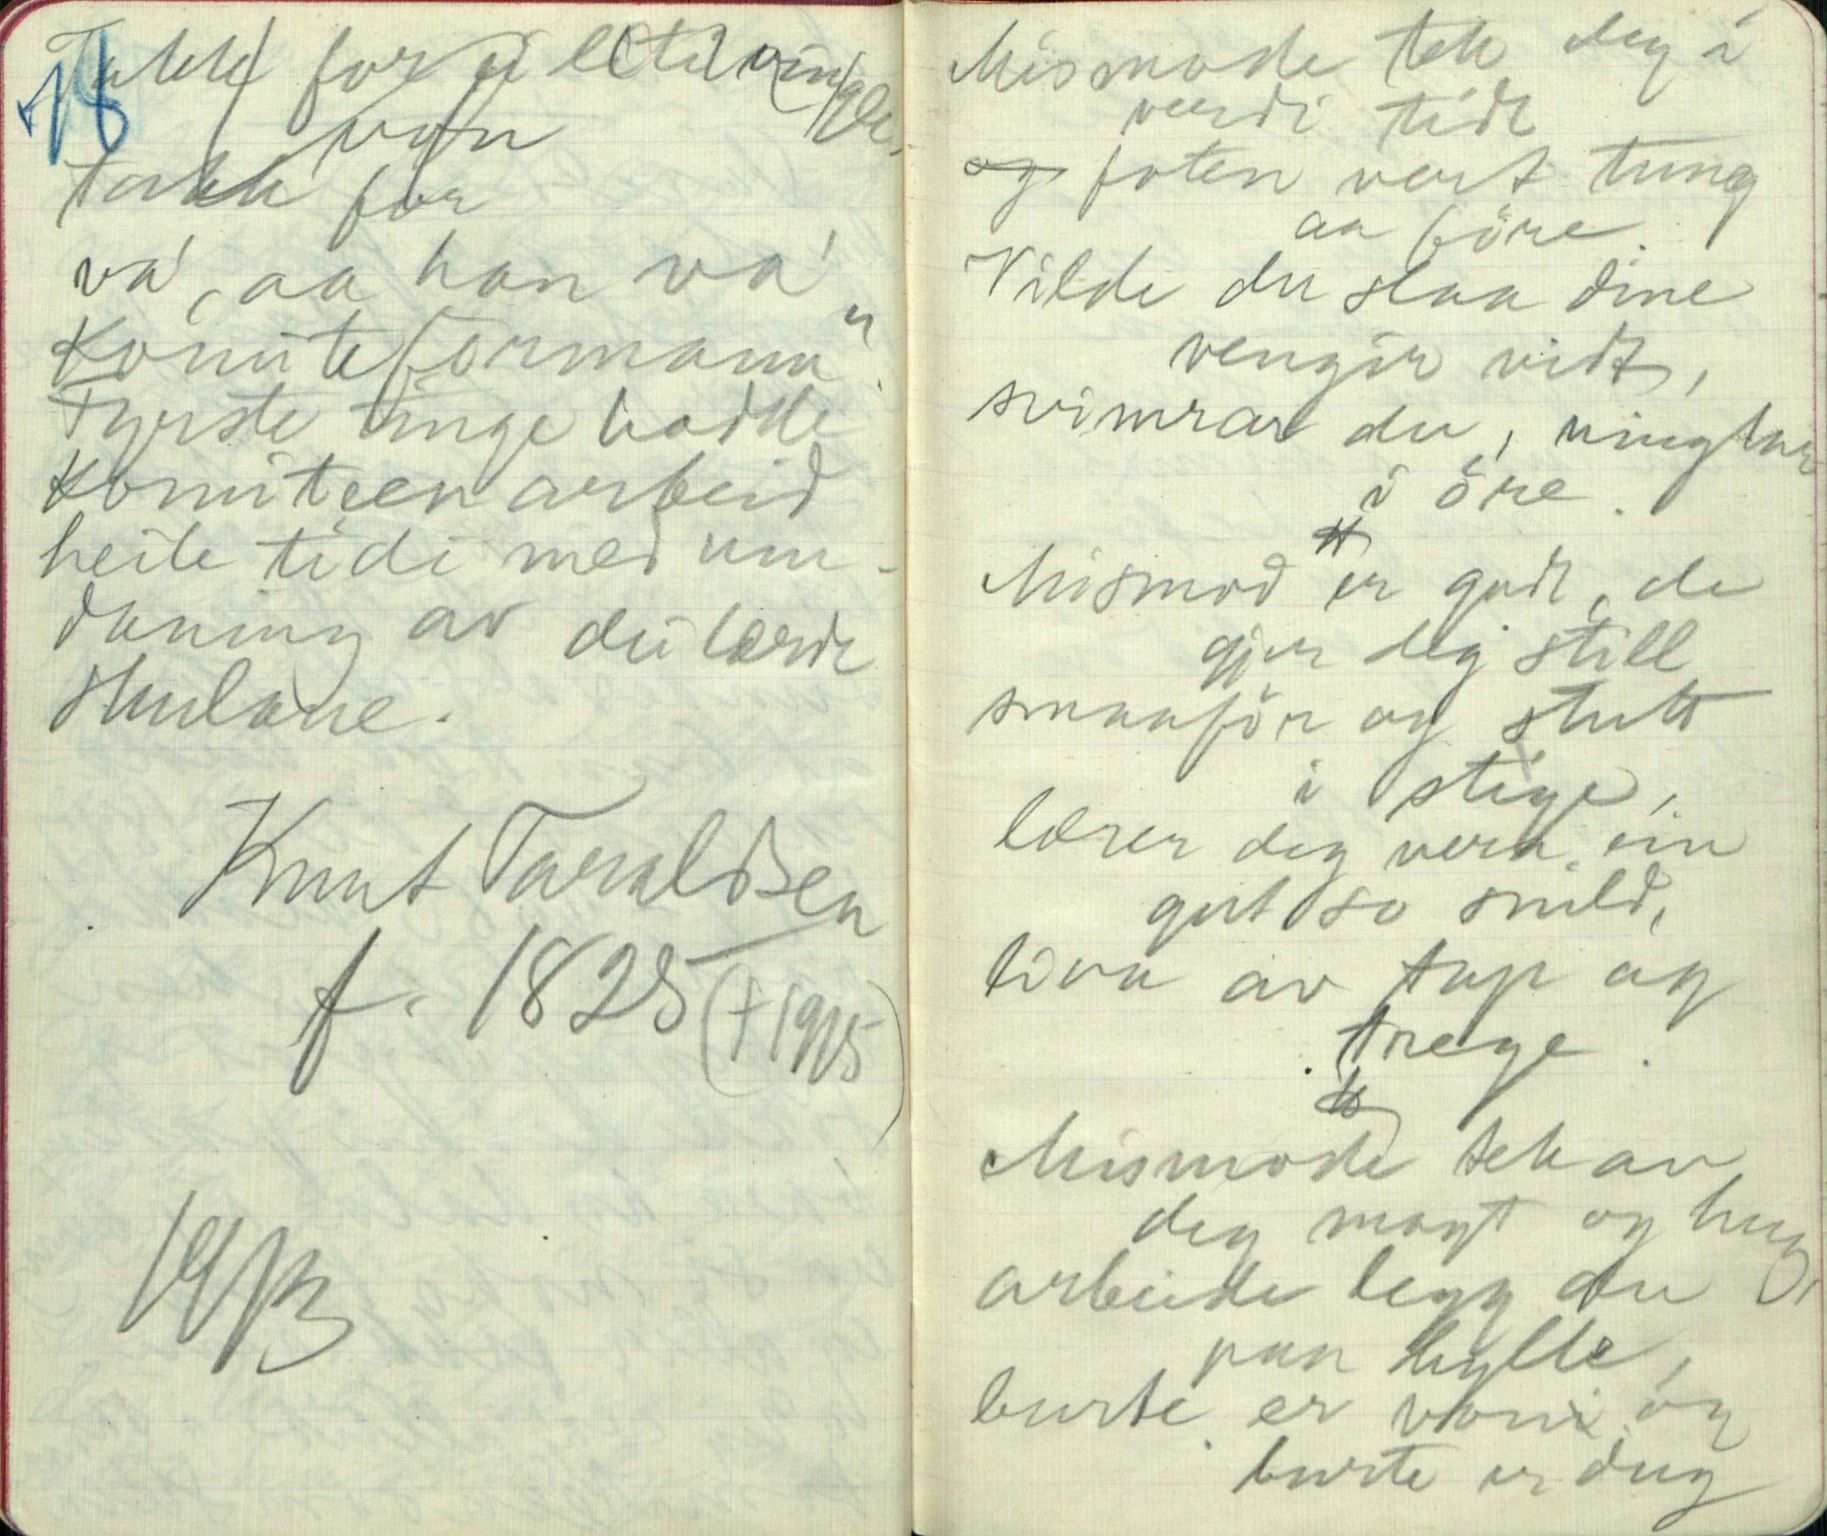 18
Takk for
Takk for
vá, aa han va'
Komiteformann".
Fyrste tinge hadde
Komiteen arbeid
heile tidi med um-
daning av dei lærde
skulane.
Knut Taraldsen
f. 1825 († 1915)
Mismode tek deg i
verdi tidt
og foten vert tung
aa före.
Vilde du slaa dine
vengir vidt,
svimrar du, ringlar
i öre.
Mismod er godt, de
gjer deg still
smaaför og stutt
i stige,
lærer deg vera ein
gut so snild,
liva av tap og
trege.
Mismode tek av
deg magt og hug,
arbeide legg du
paa hylle,
burte er voni og
burte er dug